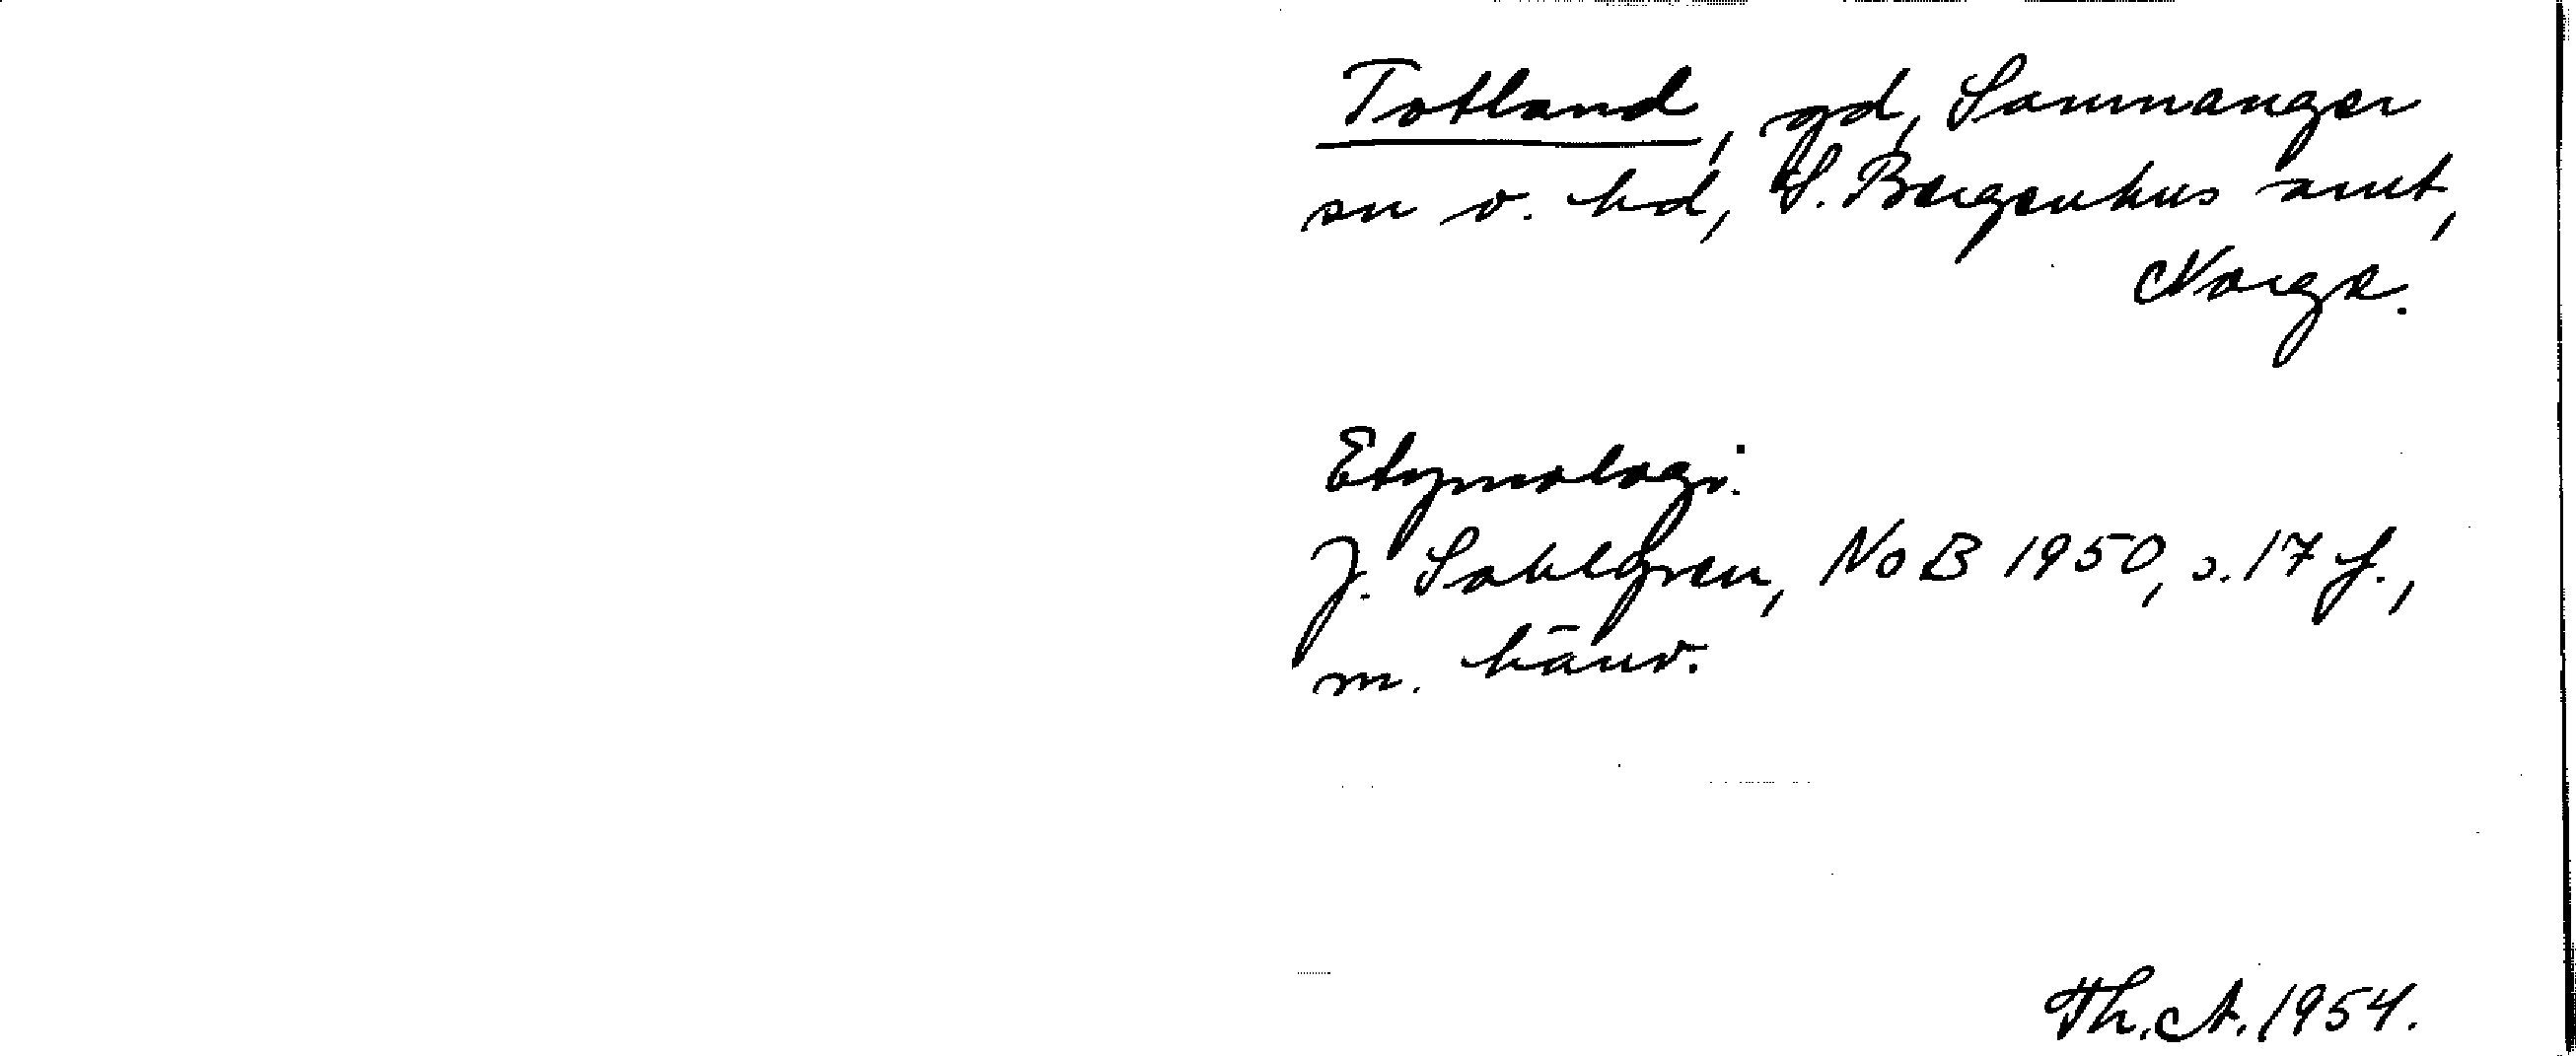 Totland, gd, Samnanger
sn o. hd, S. Bergenhus amt,
Norge.
Etymologi.
J. Sahlgren, NoB 1950, s. 17 f.,
m. hänv.
Th. A. 1954.